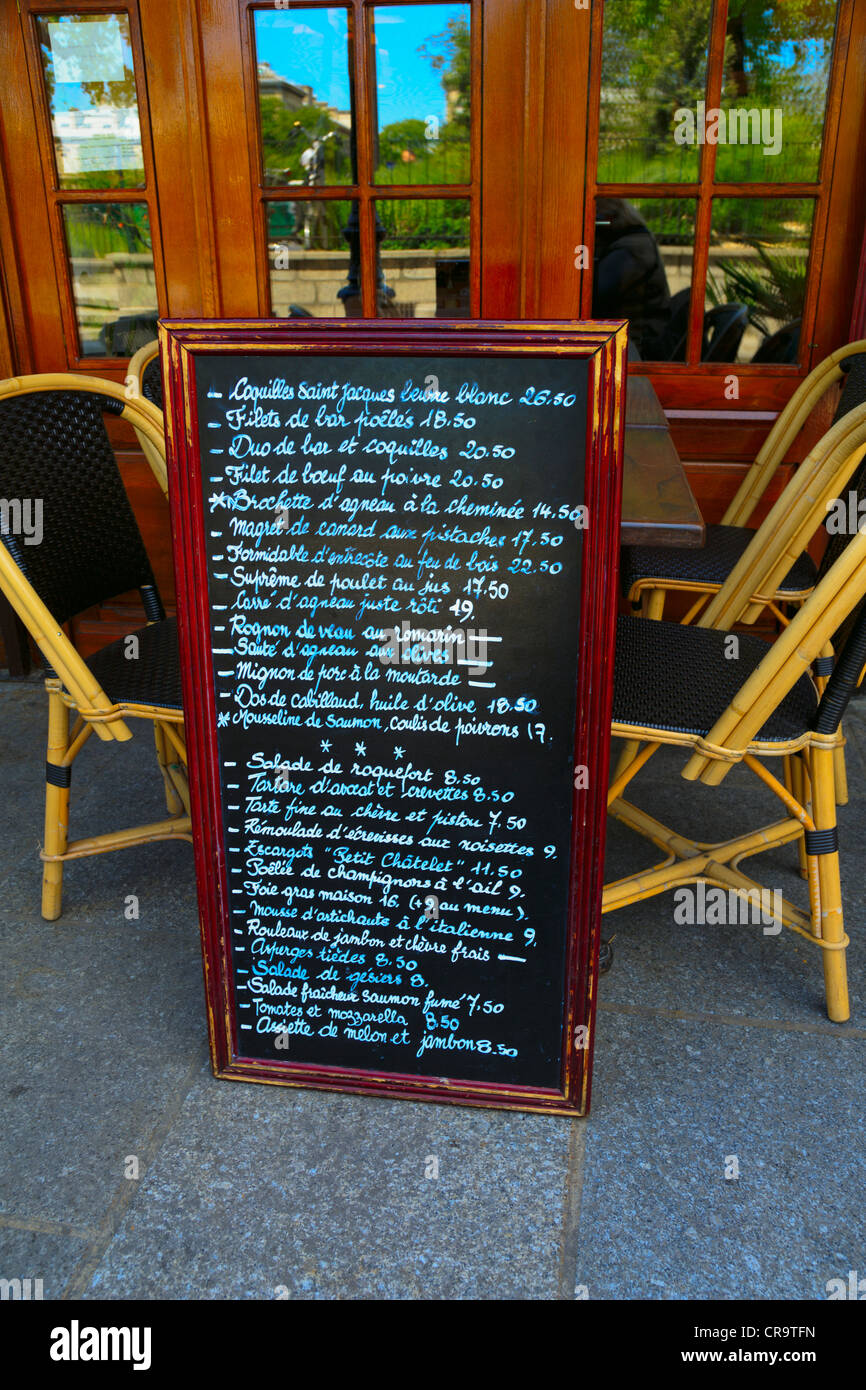 - Coquilles Saint Jacques beurre blanc 26.50
- Filets de bar poêlés 18.50
- Duo de bar et coquilles 20.50
- Filet de bœuf au poivre 20.50
* Brochette d'agneau à la cheminée 14.50
- Magret de canard aux pistaches 17.50
- Formidable d'entrecôte au feu de bois 22.50
- Suprême de poulet au jus 17.50
- Carré d'agneau juste rôti 19.
- Rognon de veau au romarin —
- Sauté d'agneau aux olives —
- Mignon de porc à la moutarde —
- Dos de cabillaud, huile d'olive 18.50
* Mousseline de Saumon, coulis de poivrons 17.
* * *
- Salade de roquefort 8.50
- Tartare d'avocat et crevettes 8.50
- Tarte fine au chèvre et pistou 7.50
- Rémoulade d'écrevisses aux noisettes 9.
- Escargots "Petit Châtelet" 11.50
- Poêlée de champignons à l'ail 9.
- Foie gras maison 16. (+9 au menu).
- Mousse d'artichauts à l'italienne 9.
- Rouleaux de jambon et chèvre frais —
- Asperges tièdes 8.50
- Salade de gésiers 8.
- Salade fraîcheur Saumon fumé 7.50
- Tomates et mozzarella 8.50
- Assiette de melon et jambon 8.50
alamy
Image ID: CR9TFN
www.alamy.com